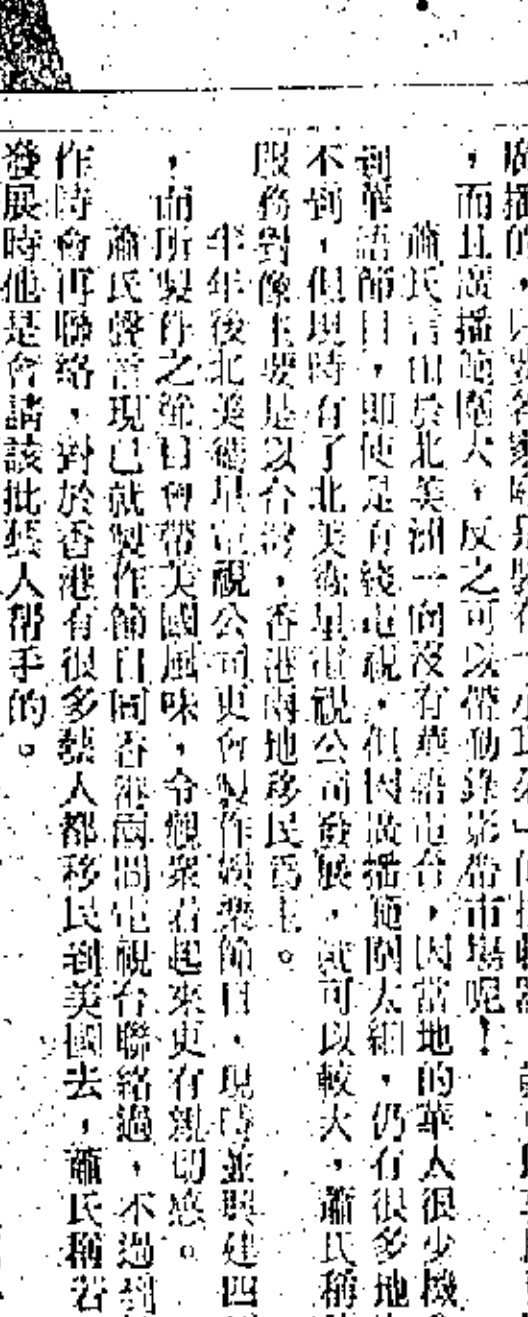 ，而且廣播範圍大，反之可以帶動錄影帶市場呢！
蕭氏言由於北美洲一向沒有華語電台，因當地的華人很少機
到華語節目，即使是有綫電視，但因廣播範圍太細，仍有很多地
不到，但現時有了北美衞星電視公司發展，就可以較大，蕭氏稱
服務對像主要是以台灣，香港兩地移民爲主。
半年後北美衞星電視公司更會製作娛樂節目，現時並興建四
，而所製作之節目會帶美國風味，令觀衆看起來更有親切感。
蕭氏聲言現已就製作節目同香港兩間電視台聯絡過，不過到
作時會再聯絡，對於香港有很多藝人都移民到美國去，蕭氏稱若
發展時他是會請該批藝人幫手的。